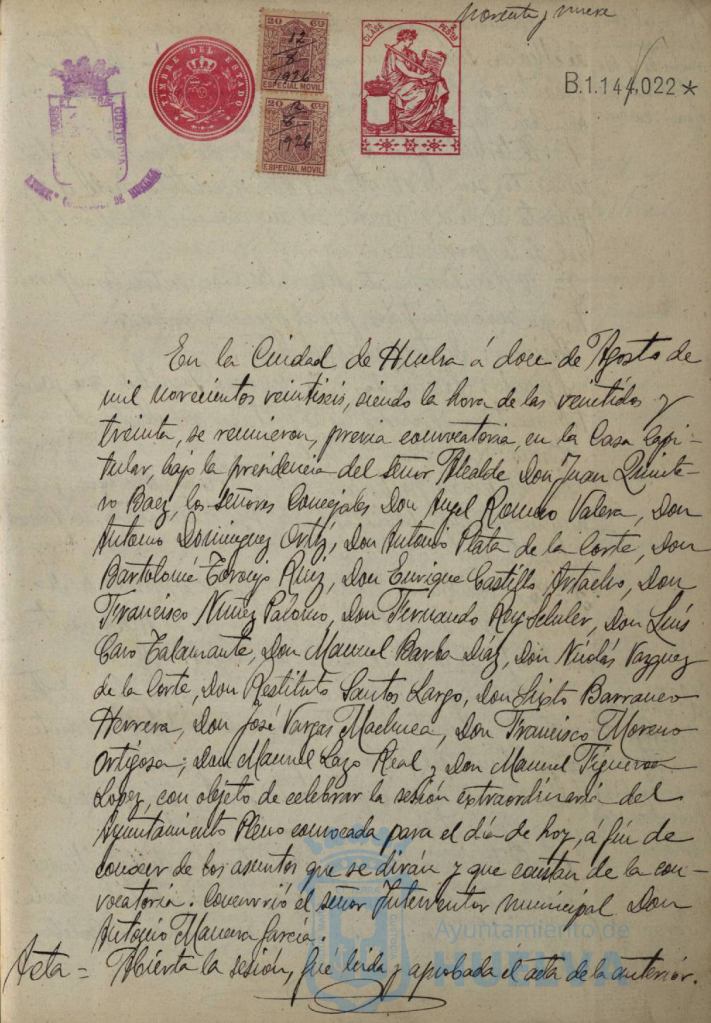 noventa y nueve
TIMBRE DEL ESTADO
20 Cs
12
8
1926
ESPECIAL MOVIL
20 Cs
12
8
1926
ESPECIAL MOVIL
CLASE
B.1.144,022*
En la Ciudad de Huelva á doce de Agosto de
mil novecientos veintiseis, siendo la hora de las veintidos y
treinta, se reunieron, previa convocatoria, en la Casa Capi-
tular, bajo la presidencia del señor Alcalde Don Juan Quinte-
ro Baez, los señores Concejales Don Angel Romero Valera, Don
Antonio Dominguez Ortiz, Don Antonio Plata de la Corte, Don
Bartolomé Toronjo Ruiz, Don Enrique Castillo Artacho, Don
Francisco Nuñez Palomo, Don Fernando Rey Schuler, Don Luís
Caro Talamante, Don Manuel Barba Díaz, Don Nicolás Vazquez
de la Corte, Don Restituto Santos Largo, Don Sixto Barranco
Herrera, Don José Vargas Machuca, Don Francisco Moreno
Ortigosa, Don Manuel Lazo Real y Don Manuel Figueroa
Lopez, con objeto de celebrar la sesión extraordinaria del
Ayuntamiento Pleno convocada para el día de hoy, á fin de
conocer de los asuntos que se dirán y que constan de la con-
vocatoria. Concurrió el señor Interventor municipal Don
Antonio Manera García.
Acta = Abierta la sesión, fué leida y aprobada el acta de la anterior.
Ayuntamiento de
HUELVA